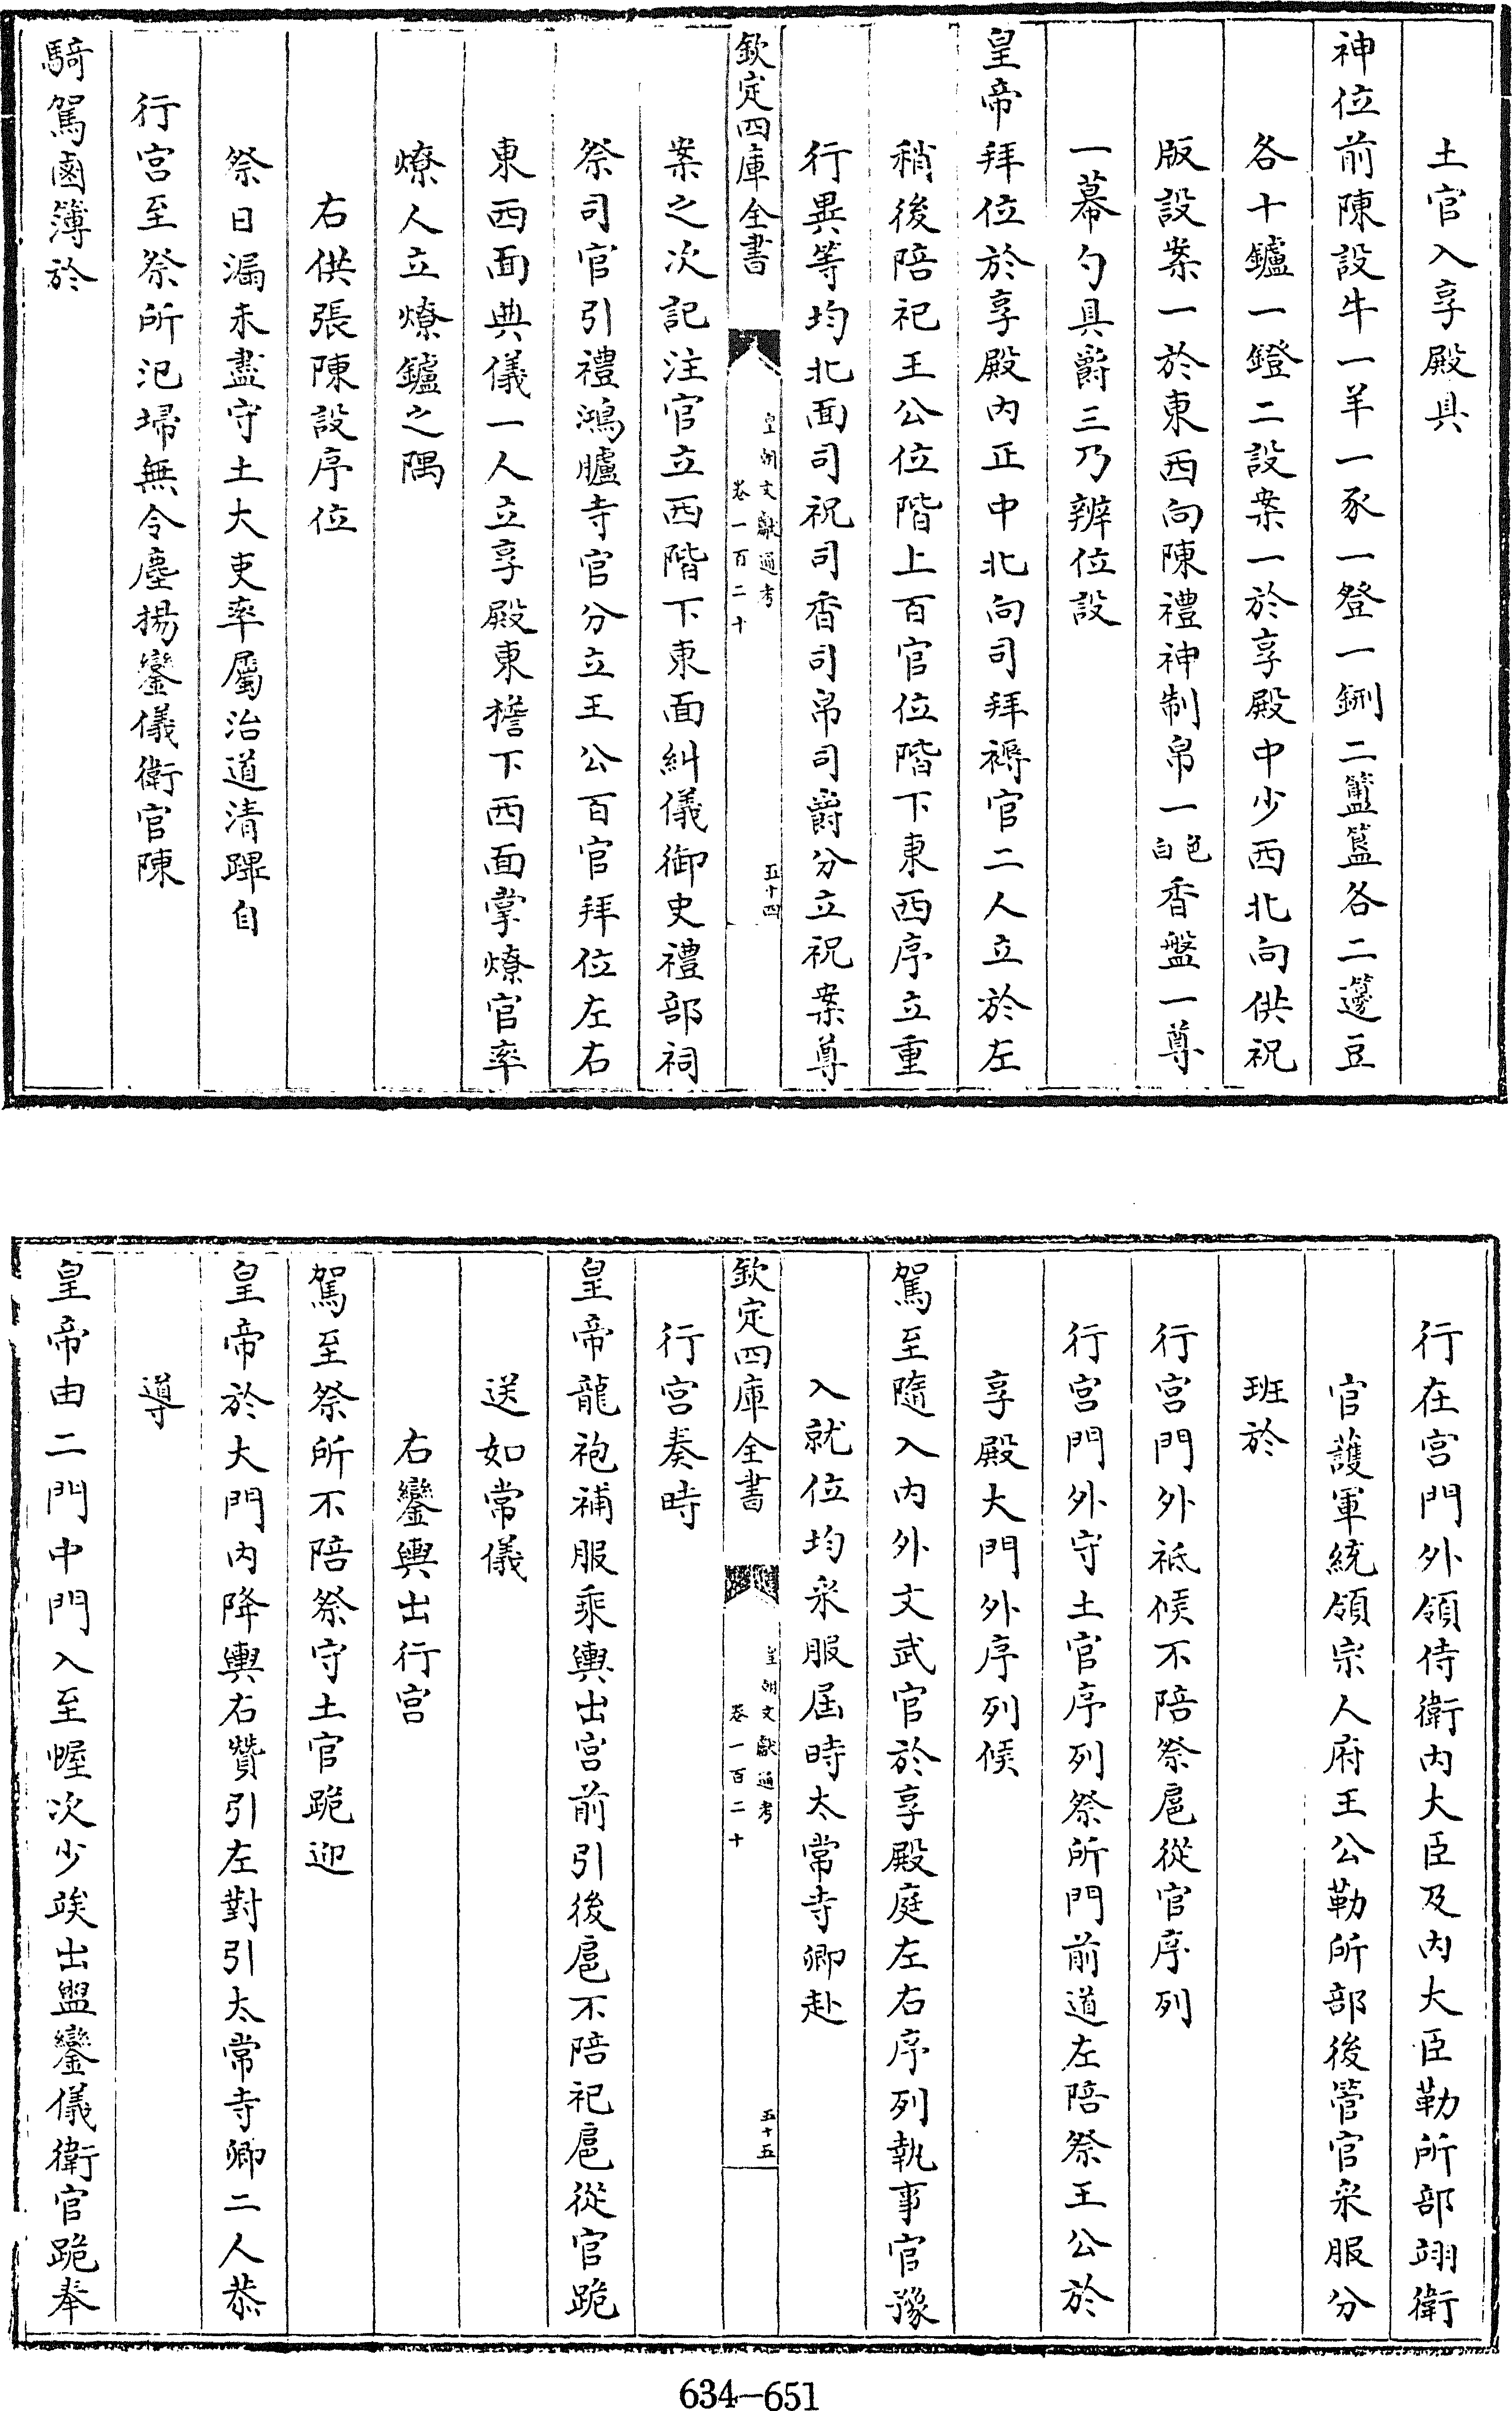 土官入享殿具
神位前陳設牛一羊一豕一登一鉶二簠簋各二籩豆
各十鑪一鐙二設案一於享殿中少西北向供祝
版設案一於東西向陳禮神制帛一白色香盤一尊
一冪勺具爵三乃辨位設
皇帝拜位於享殿内正中北向司拜褥官二人立於左
稍後陪祀王公位階上百官位階下東西序立重
行異等均北面司祝司香司帛司爵分立祝案尊
欽定四庫全書 皇朝文獻通考 卷一百二十 五十四
案之次記注官立西階下東面糾儀御史禮部祠
祭司官引禮鴻臚寺官分立王公百官拜位左右
東西面典儀一人立享殿東簷下西面掌燎官率
燎人立燎鑪之隅
右供張陳設序位
祭日漏未盡守土大吏率屬治道清蹕自
行宫至祭所汜埽無令塵揚鑾儀衛官陳
騎駕鹵簿於
行在宫門外領侍衛内大臣及内大臣勒所部翊衛
官護軍統領宗人府王公勒所部後管官采服分
班於
行宫門外祗候不陪祭扈從官序列
行宫門外守土官序列祭所門前道左陪祭王公於
享殿大門外序列候
駕至隨入内外文武官於享殿庭左右序列執事官豫
入就位均采服屆時太常寺卿赴
欽定四庫全書 皇朝文獻通考 卷一百二十 五十五
行宫奏時
皇帝龍袍補服乘輿出宫前引後扈不陪祀扈從官跪
送如常儀
右鑾輿出行宫
駕至祭所不陪祭守土官跪迎
皇帝於大門内降輿右贊引左對引太常寺卿二人恭
導
皇帝由二門中門入至幄次少竢出盥鑾儀衛官跪奉
634—651